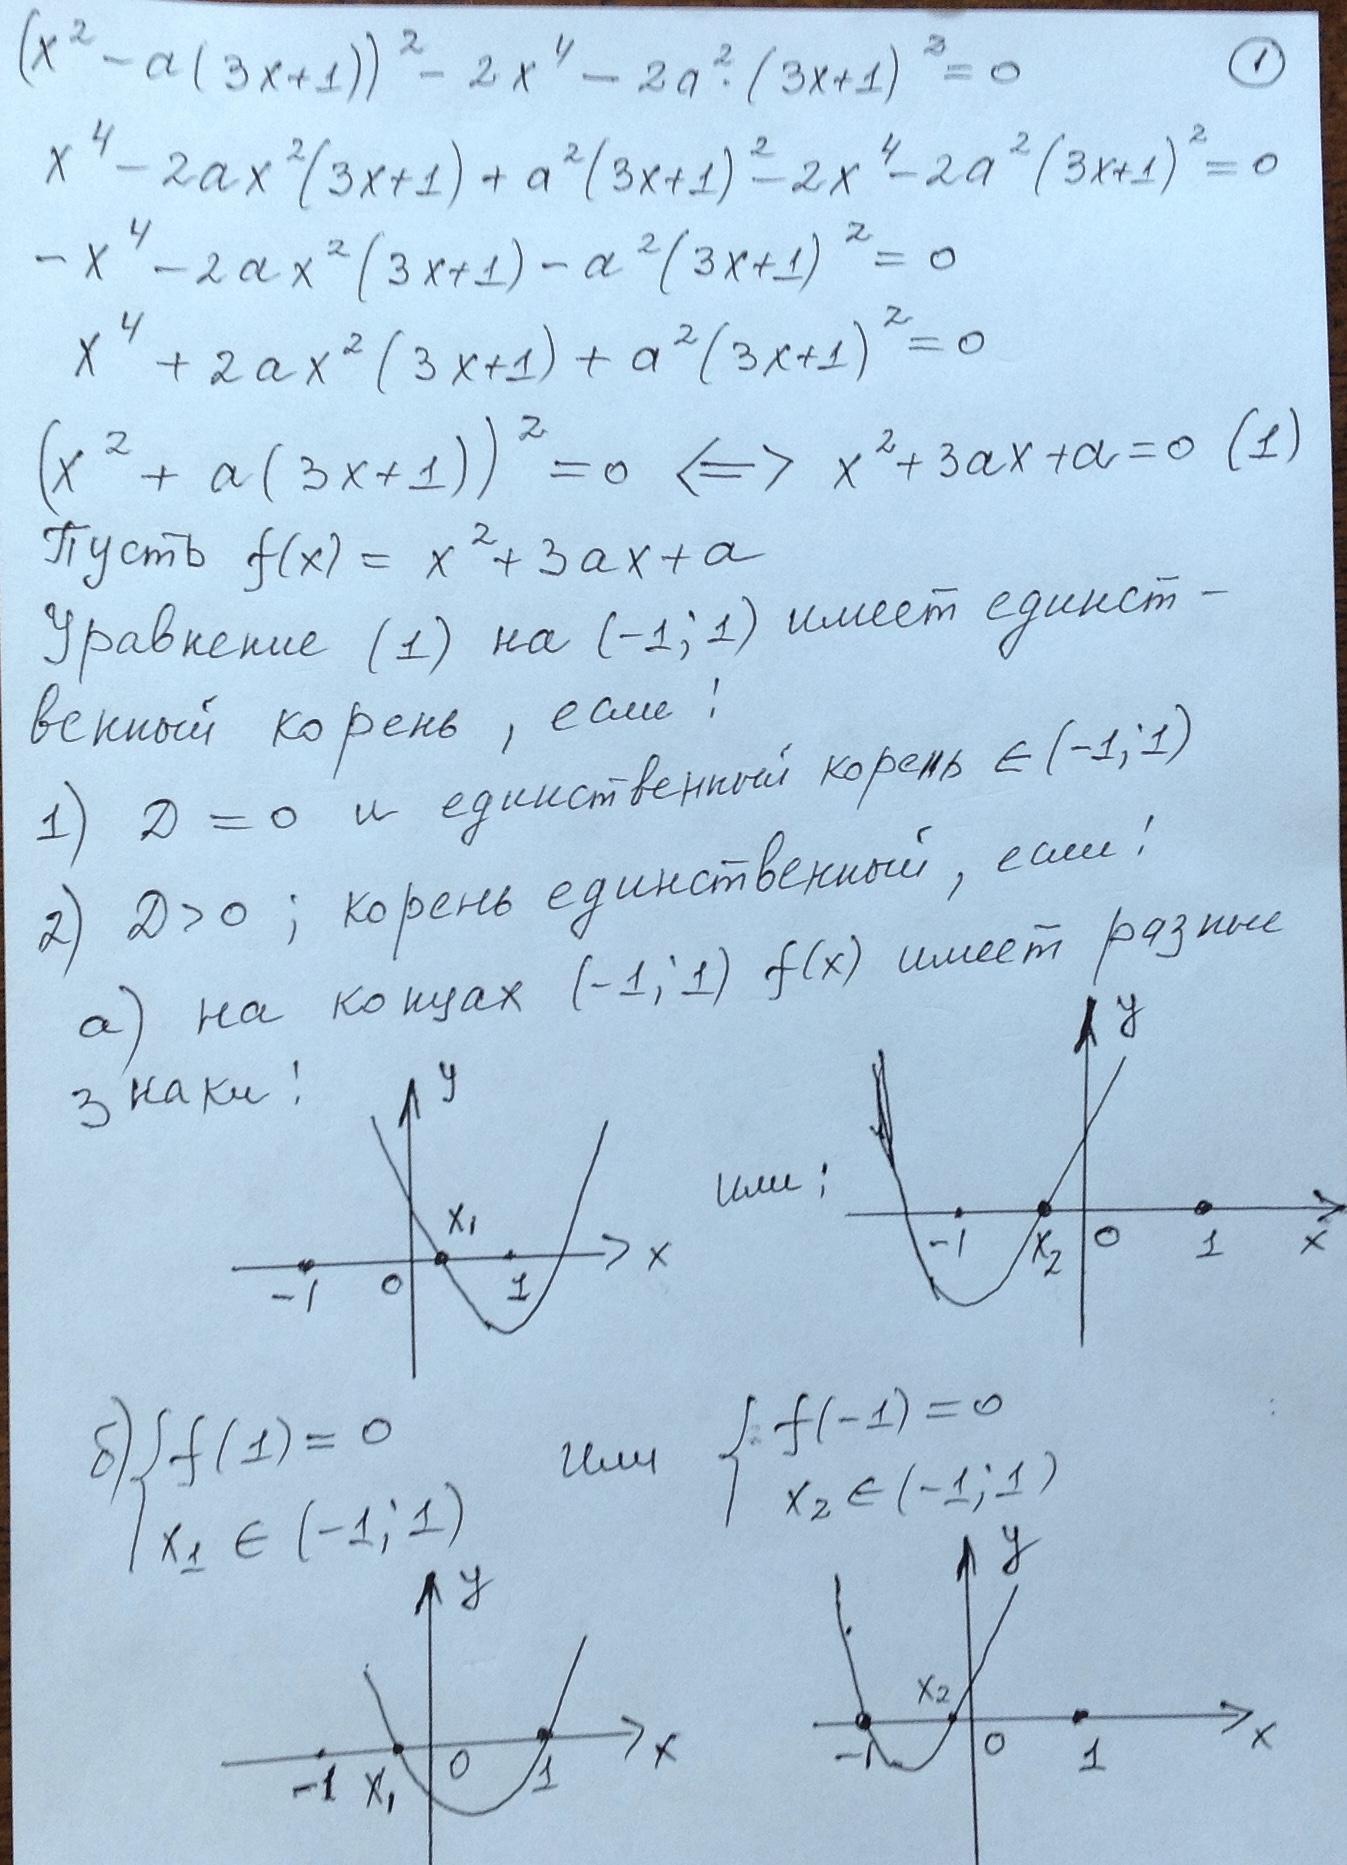 (x² - a(3x+1))² - 2x⁴ - 2a²·(3x+1)² = 0
1
x⁴ - 2ax²(3x+1) + a²(3x+1)² - 2x⁴ - 2a²(3x+1)² = 0
-x⁴ - 2ax²(3x+1) - a²(3x+1)² = 0
x⁴ + 2ax²(3x+1) + a²(3x+1)² = 0
(x² + a(3x+1))² = 0 <=> x² + 3ax + a = 0 (1)
Пусть f(x) = x² + 3ax + a
Уравнение (1) на (-1; 1) имеет единст-
венный корень, если:
1) D = 0 и единственный корень ∈ (-1; 1)
2) D > 0; корень единственный, если:
а) на концах (-1; 1) f(x) имеет разные
знаки:
y
x₁
-1 0 1 x
или:
y
-1 x₂ 0 1 x
б) { f(1) = 0
x₁ ∈ (-1; 1)
или
{ f(-1) = 0
x₂ ∈ (-1; 1)
y
-1 x₁ 0 1 x
y
x₂
-1 0 1 x